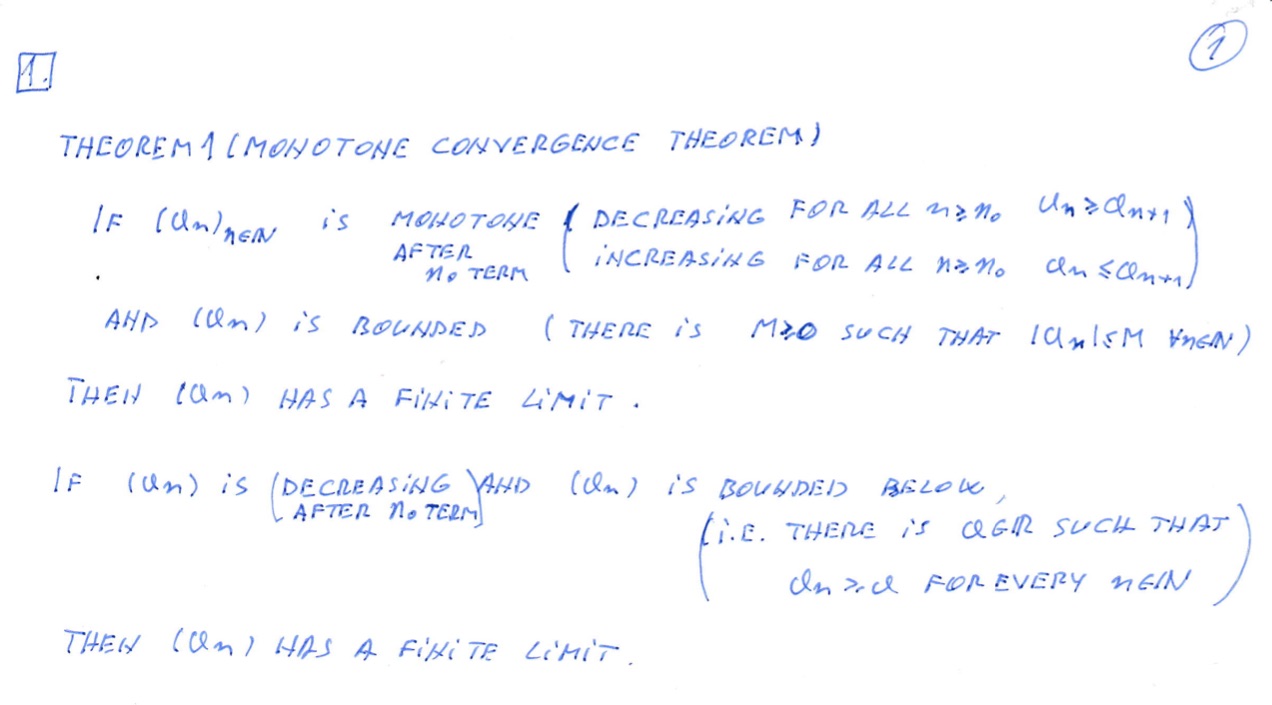 1
1.
THEOREM 1 (MONOTONE CONVERGENCE THEOREM)
IF (an)n∈ℕ is MONOTONE ( DECREASING FOR ALL n≥n₀ an≥an+1 )
AFTER
n₀ TERM
INCREASING FOR ALL n≥n₀ an≤an+1
AND (an) is BOUNDED (THERE is M≥0 SUCH THAT |an|≤M ∀n∈ℕ)
THEN (an) HAS A FINITE LIMIT.
IF (an) is (DECREASING AFTER n₀ TERM) AND (an) is BOUNDED BELOW,
(i.E. THERE is a∈ℝ SUCH THAT
an≥a FOR EVERY n∈ℕ)
THEN (an) HAS A FINITE LIMIT.